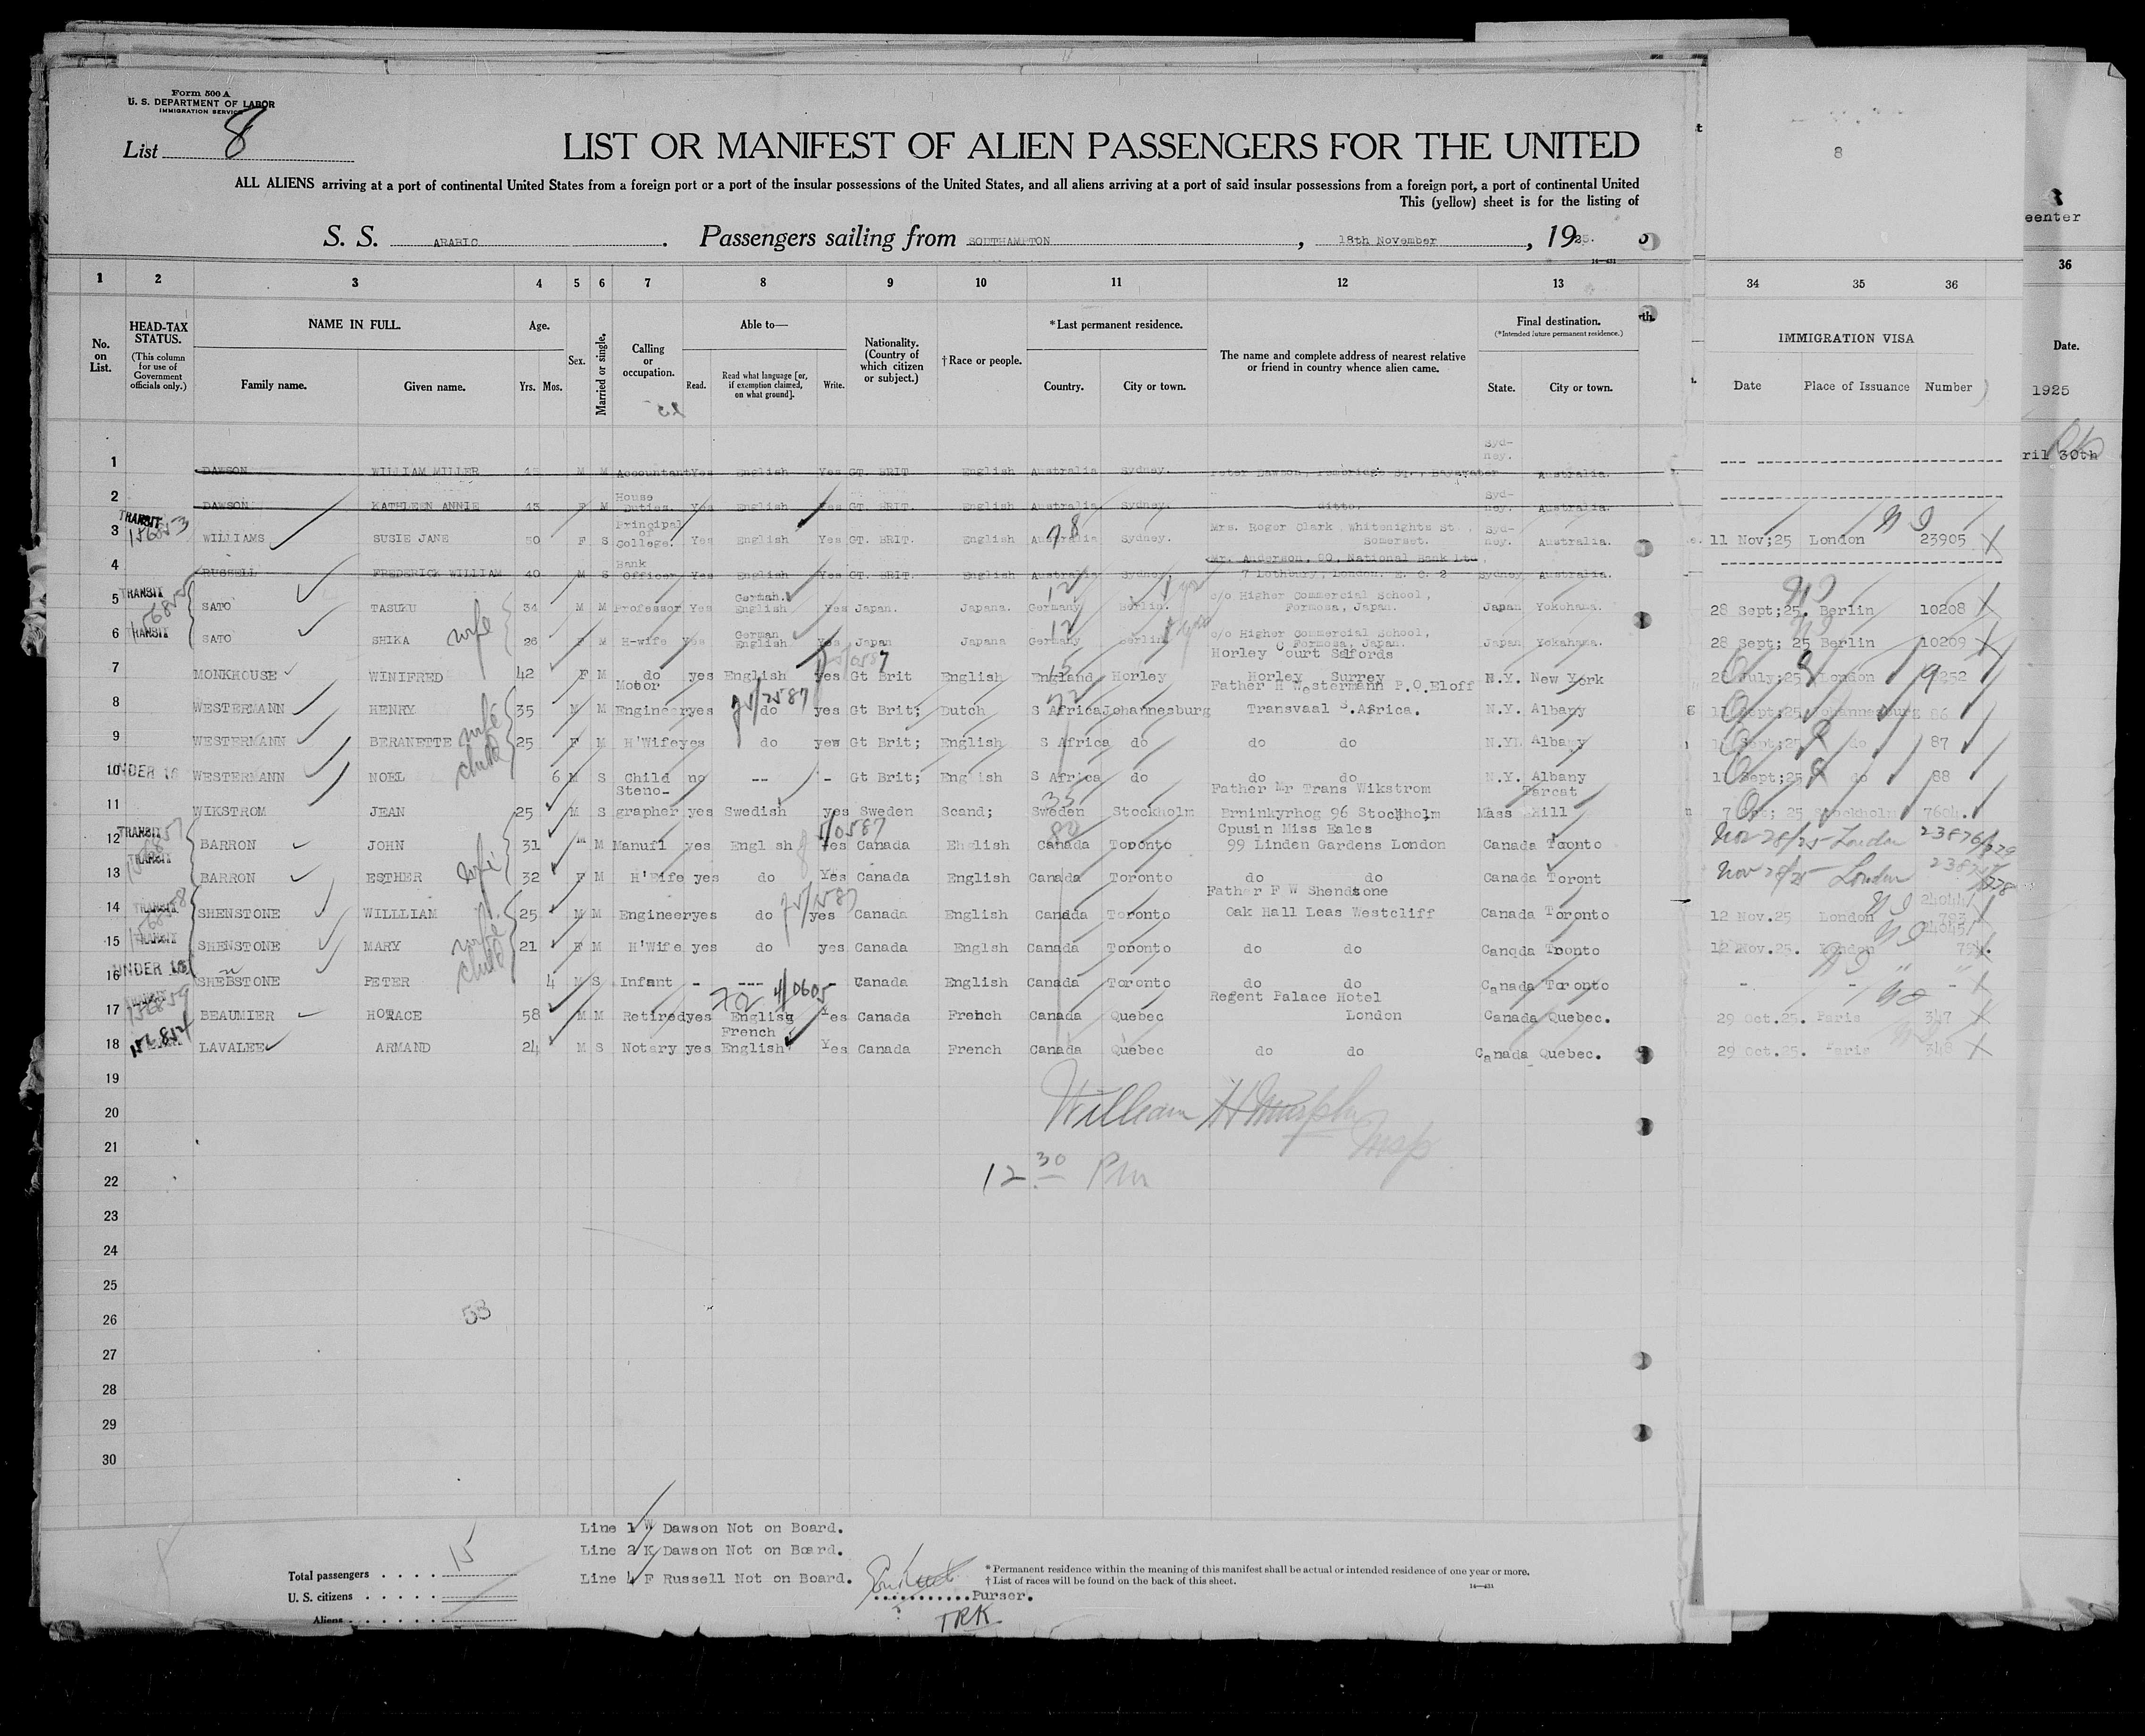 Form 500 A
U. S. DEPARTMENT OF LABOR
IMMIGRATION SERVICE
List 8
LIST OR MANIFEST OF ALIEN PASSENGERS FOR THE UNITED
ALL ALIENS arriving at a port of continental United States from a foreign port or a port of the insular possessions of the United States, and all aliens arriving at a port of said insular possessions from a foreign port, a port of continental United
This (yellow) sheet is for the listing of
S. S. ARABIC . Passengers sailing from SOUTHAMPTON , 18th November , 1925.
8
eenter
1 2 3 4 5 6 7 8 9 10 11 12 13 34 35 36 36
No. on List.
HEAD-TAX STATUS.
(This column for use of Government officials only.)
NAME IN FULL.
Family name. Given name.
Age.
Yrs. Mos.
Sex.
Married or single.
Calling or occupation.
Able to—
Read. Read what language [or, if exemption claimed, on what ground]. Write.
Nationality. (Country of which citizen or subject.)
†Race or people.
*Last permanent residence.
Country. City or town.
The name and complete address of nearest relative or friend in country whence alien came.
Final destination.
(*Intended future permanent residence.)
State. City or town.
IMMIGRATION VISA
Date Place of Issuance Number
Date.
1925
ril 30th
1 DAWSON WILLIAM MILLER 45 M M Accountant Yes English Yes GT. BRIT English Australia Sydney. Peter Dawson, Pembridge Sq., Bayswater Syd-ney. Australia.
2 DAWSON KATHLEEN ANNIE 43 F M House Duties. Yes English Yes GT. BRIT. English Australia Sydney. ditto. Syd-ney. Australia.
3 TRANSIT WILLIAMS SUSIE JANE 50 F S Principal of College. Yes English Yes GT. BRIT. English Australia Sydney. Mrs. Roger Clark, Whitenights St., Somerset. Syd-ney. Australia. 11 Nov;25 London 23905
4 RUSSELL FREDERICK WILLIAM 40 M S Bank Officer Yes English Yes GT. BRIT. English Australia Sydney. Mr. Anderson, CO, National Bank Ltd 7 Lothbury, London. E. C. 2 Sydney Australia.
5 TRANSIT SATO TASUKU 34 M M Professor Yes German. English Yes Japan. Japana. Germany Berlin. c/o Higher Commercial School, Formosa, Japan. Japan Yokohama. 28 Sept;25. Berlin 10208
6 TRANSIT SATO SHIKA wife 26 F M H-wife Yes German English Yes Japan Japana Germany Berlin c/o Higher Commercial School, Formosa, Japan. Japan Yokahama. 28 Sept; 25 Berlin 10209
7 MONKHOUSE WINIFRED 42 F M do yes English yes Gt Brit English England Horley Horley Court Salfords Horley Surrey N.Y. New York July;25 London 9252
8 WESTERMANN HENRY 35 M M Motor Engineer yes do yes Gt Brit; Dutch S Africa Johannesburg Father H Westermann P.O.Eloff Transvaal S.Africa. N.Y. Albany Sept;25 Johannesburg 86
9 WESTERMANN BERANETTE wife 25 F M H'Wife yes do yew Gt Brit; English S Africa do do do N.Y. Albany Sept;25 do 87
10 UNDER 16 WESTERMANN NOEL child 6 M S Child no -- - Gt Brit; English S Africa do do do N.Y. Albany Sept;25 do 88
11 WIKSTROM JEAN 25 M S Steno-grapher yes Swedish yes Sweden Scand; Sweden Stockholm Father Mr Trans Wikstrom Brninkyrhog 96 Stockholm Mass Tarcat Hill 7 25 Stockholm 7604.
12 TRANSIT BARRON JOHN 31 M M Manufl yes Engl sh Yes Canada English Canada Toronto Cpusin Miss Eales 99 Linden Gardens London Canada Toonto Nov 28/25 London 23876
13 TRANSIT BARRON ESTHER wife 32 F M H'Wife yes do Yes Canada English Canada Toronto do do Canada Toront Nov 28/25 London
14 TRANSIT SHENSTONE WILLLIAM 25 M M Engineer yes do yes Canada English Canada Toronto Father F W Shendstone Oak Hall Leas Westcliff Canada Toronto 12 Nov.25 London
15 TRANSIT SHENSTONE MARY wife 21 F M H'Wife yes do yes Canada Englsh Canada Toronto do do Canqda Tronto 12 Nov.25. London
16 UNDER 16 SHEBSTONE PETER child 4 M S Infant - --- Canada English Canada Toronto do do Canada Toronto - -
17 BEAUMIER HORACE 58 M M Retired yes Englisg Yes Canada French Canada Quebec Regent Palace Hotel London Canada Quebec. 29 Oct.25. Paris 347
18 LAVALEE ARMAND 24 M S Notary yes French English Yes Canada French Canada Quebec do do Canada Quebec. 29 Oct.25. Paris 348
19
20 William H Murphy
21 Insp
22 12 30 Pm
23
24
25
26 53
27
28
29
30
Line 1 W Dawson Not on Board.
Line 2 K Dawson Not on Board.
Line 4 F Russell Not on Board.
Total passengers . . . . 15
U. S. citizens . . . . .
Aliens . . . . . .
Purser.
TRK
*Permanent residence within the meaning of this manifest shall be actual or intended residence of one year or more.
†List of races will be found on the back of this sheet.
14—431